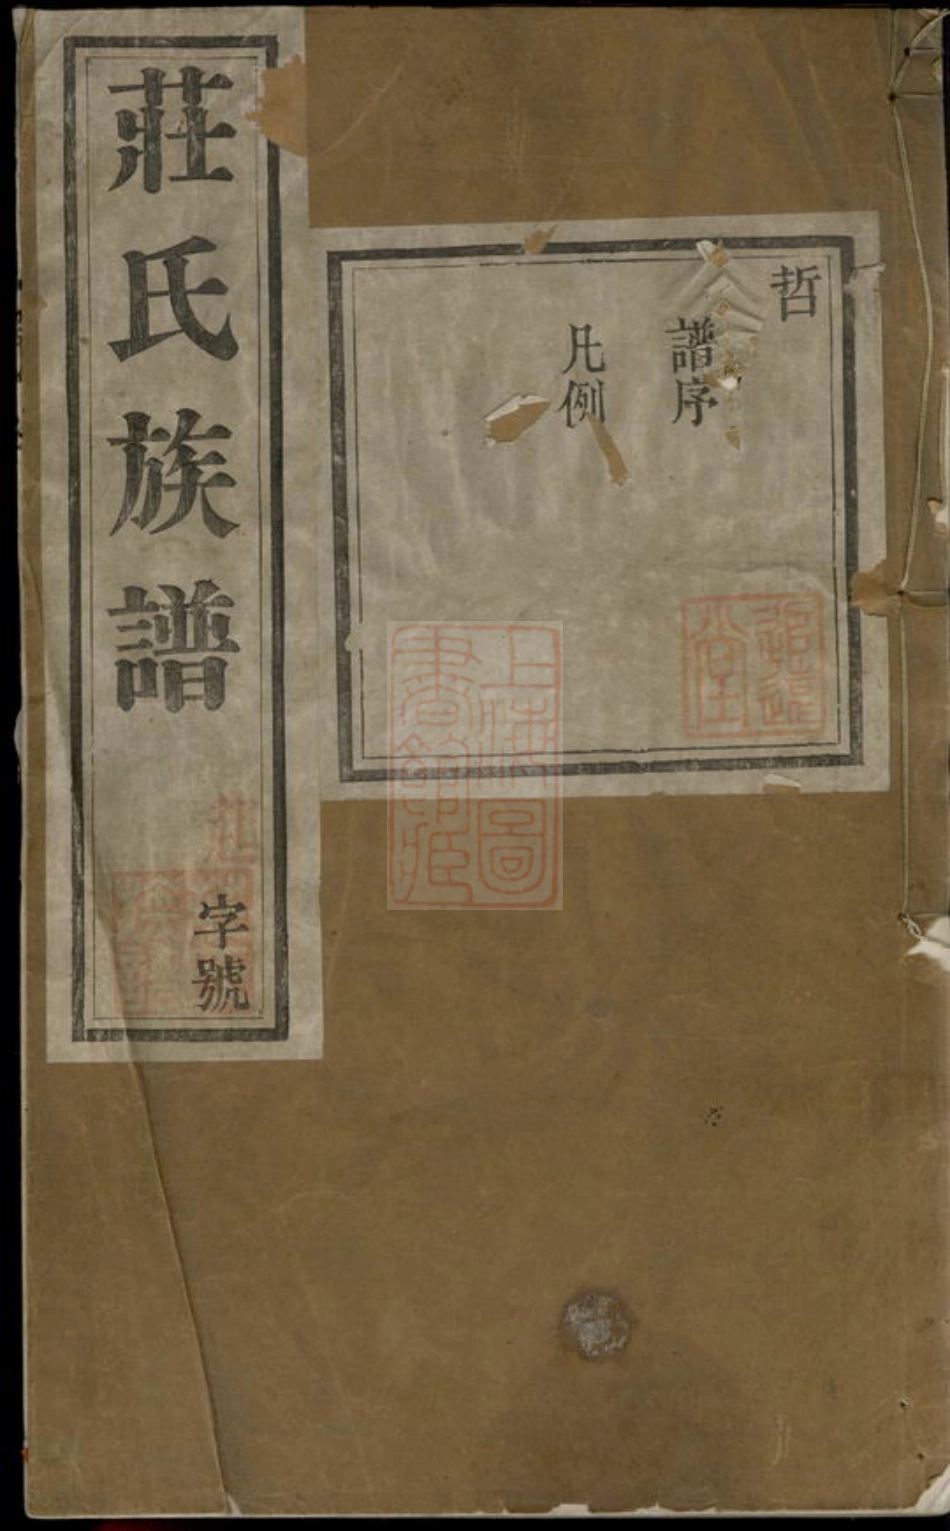 莊氏族譜
字號
哲
譜序
凡例
追遠堂
上海圖書館藏